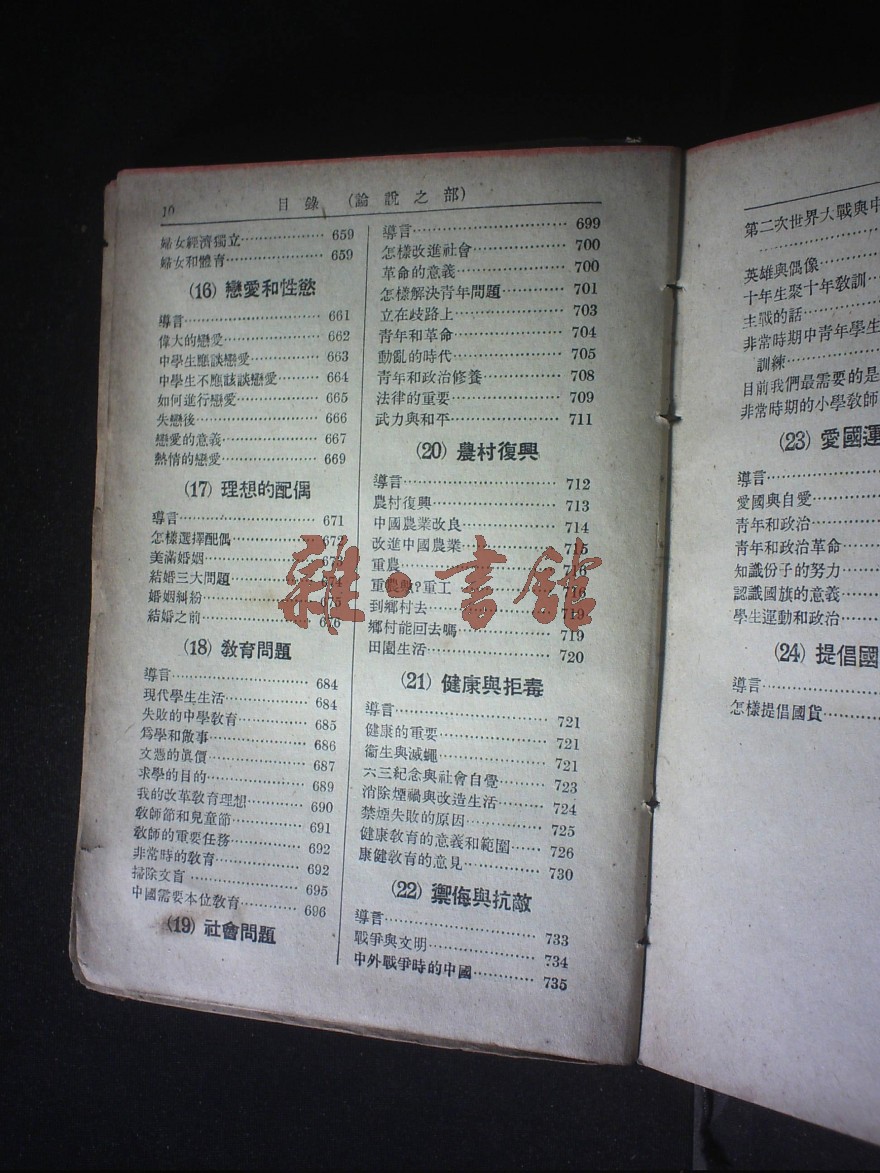 10 目錄 (論說之部)
婦女經濟獨立 659
婦女和體育 659
(16) 戀愛和性慾
導言 661
偉大的戀愛 662
中學生應談戀愛 663
中學生不應該談戀愛 664
如何進行戀愛 665
失戀後 666
戀愛的意義 667
熱情的戀愛 669
(17) 理想的配偶
導言 671
怎樣選擇配偶 672
美滿婚姻 673
結婚三大問題 674
婚姻糾紛 675
結婚之前 676
(18) 教育問題
導言 684
現代學生生活 684
失敗的中學教育 685
爲學和做事 686
文憑的眞價 687
求學的目的 689
我的改革教育理想 690
教師節和兒童節 691
教師的重要任務 692
非常時的教育 692
掃除文盲 695
中國需要本位教育 696
(19) 社會問題
導言 699
怎樣改進社會 700
革命的意義 700
怎樣解決青年問題 701
立在歧路上 703
青年和革命 704
動亂的時代 705
青年和政治修養 708
法律的重要 709
武力與和平 711
(20) 農村復興
導言 712
農村復興 713
中國農業改良 714
改進中國農業 715
重農 716
重農歟?重工 716
到鄉村去 719
鄉村能回去嗎 719
田園生活 720
(21) 健康與拒毒
導言 721
健康的重要 721
衞生與滅蠅 721
六三紀念與社會自覺 723
消除煙禍與改造生活 724
禁煙失敗的原因 725
健康教育的意義和範圍 726
康健教育的意見 730
(22) 禦侮與抗敵
導言 733
戰爭與文明 734
中外戰爭時的中國 735
第二次世界大戰與中
英雄與偶像
十年生聚十年教訓
主戰的話
非常時期中青年學生
訓練
目前我們最需要的是
非常時期的小學教師
(23) 愛國運
導言
愛國與自愛
青年和政治
青年和政治革命
知識份子的努力
認識國旗的意義
學生運動和政治
(24) 提倡國
導言
怎樣提倡國貨
雜·書館